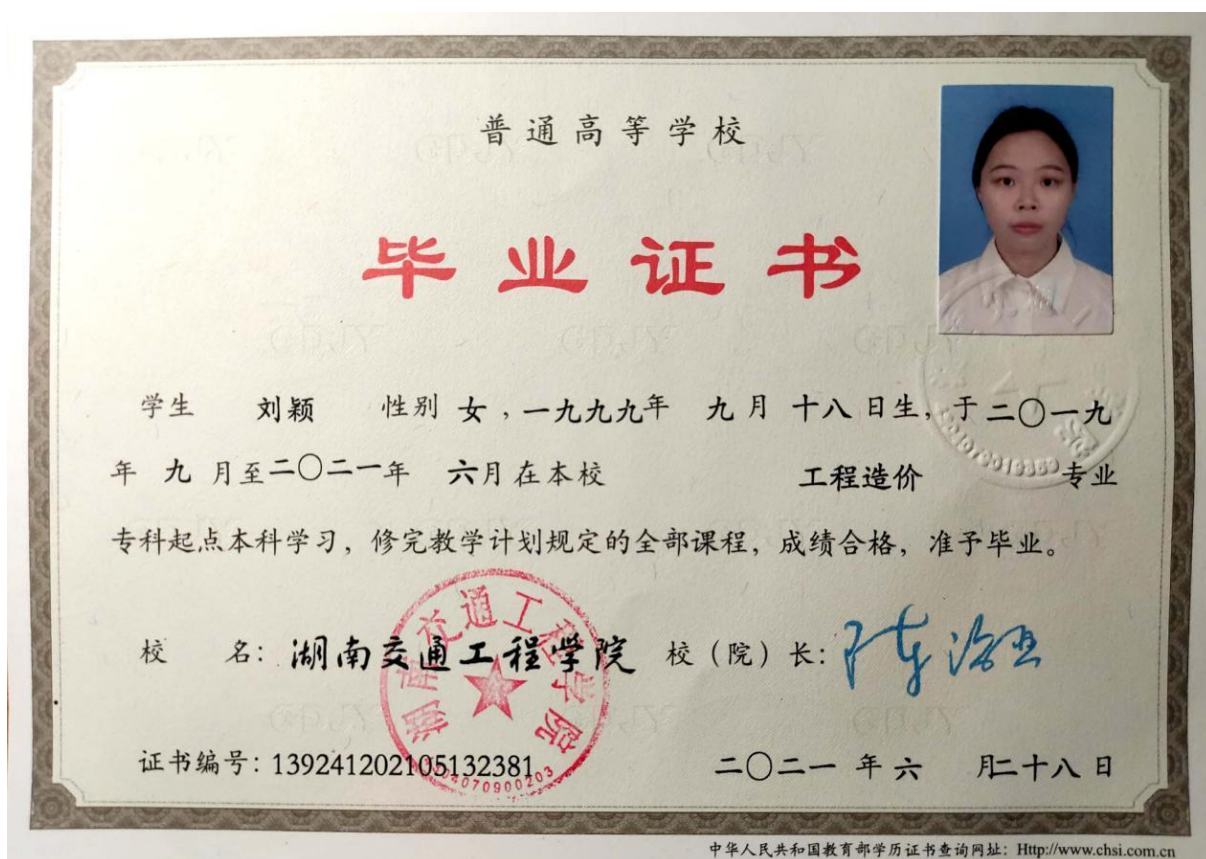 普通高等学校
毕业证书
学生 刘颖 性别 女，一九九九年 九月 十八 日生，于 二〇一九
年 九 月至二〇二一年 六月在本校 工程造价 专业
专科起点本科学习，修完教学计划规定的全部课程，成绩合格，准予毕业。
校 名：湖南交通工程学院 校（院）长：
湖南交通工程学院
证书编号：139241202105132381 二〇二一 年 六 月二十八 日
中华人民共和国教育部学历证书查询网址：Http://www.chsi.com.cn